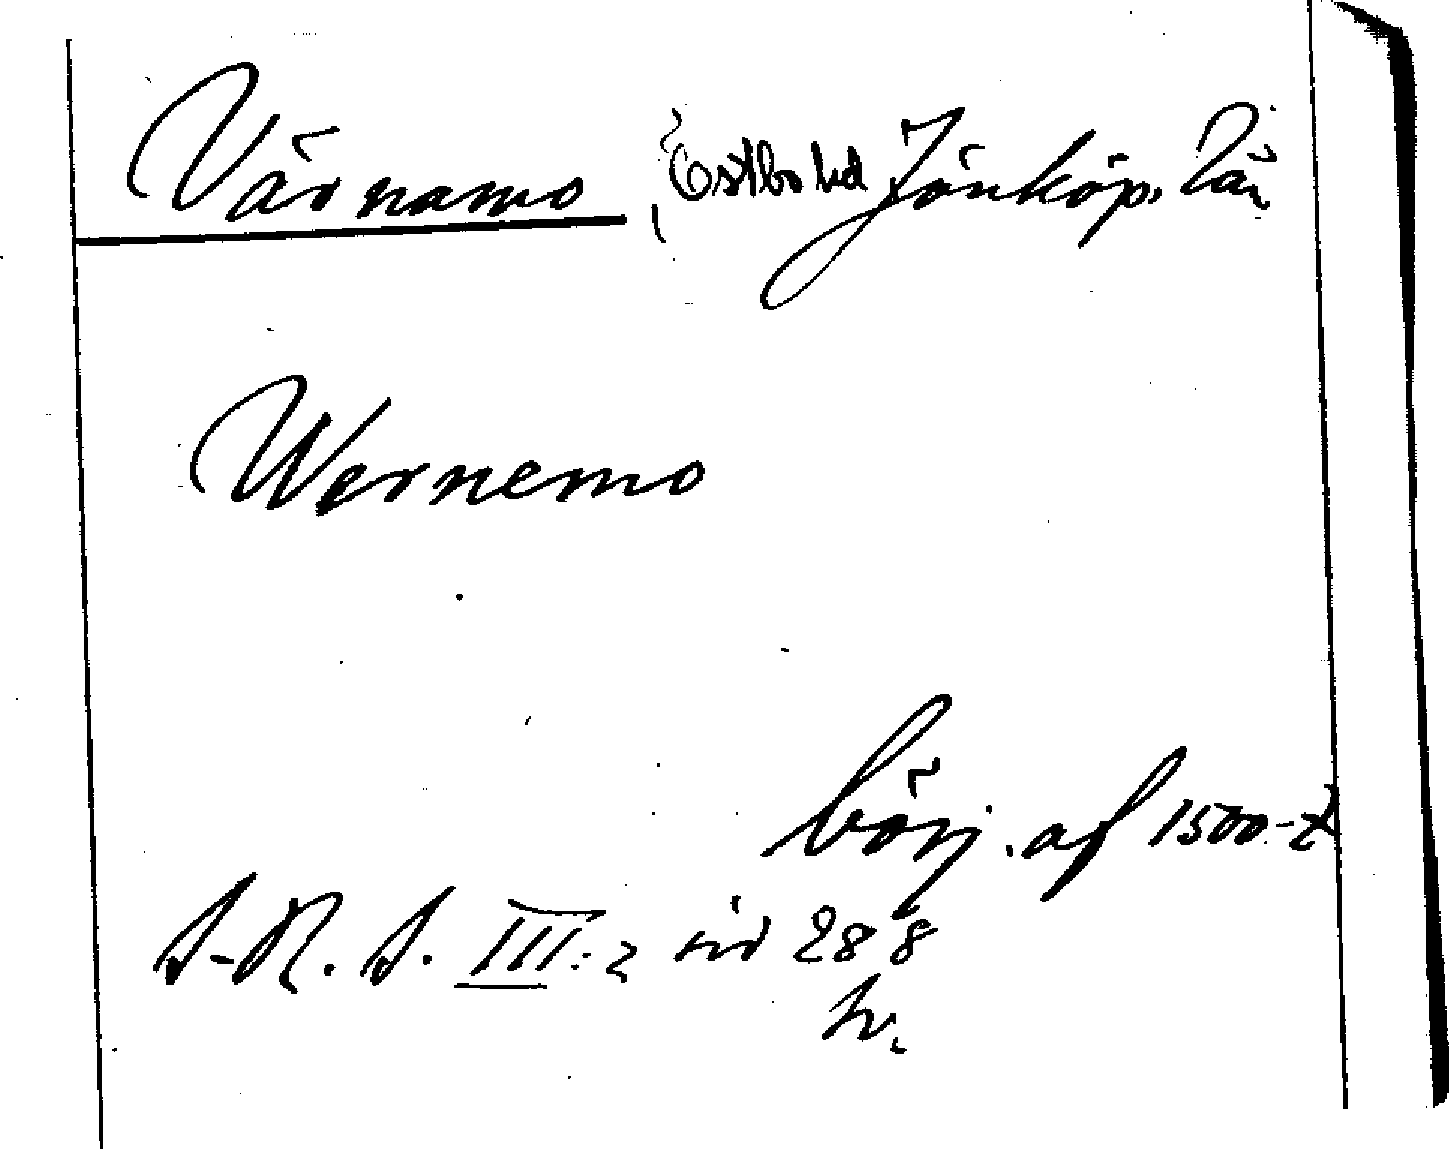 Värnamo, Östbo hd Jönköp. Län
Wernemo
börj. af 1500-t
S-R. S. III:2 sid 288